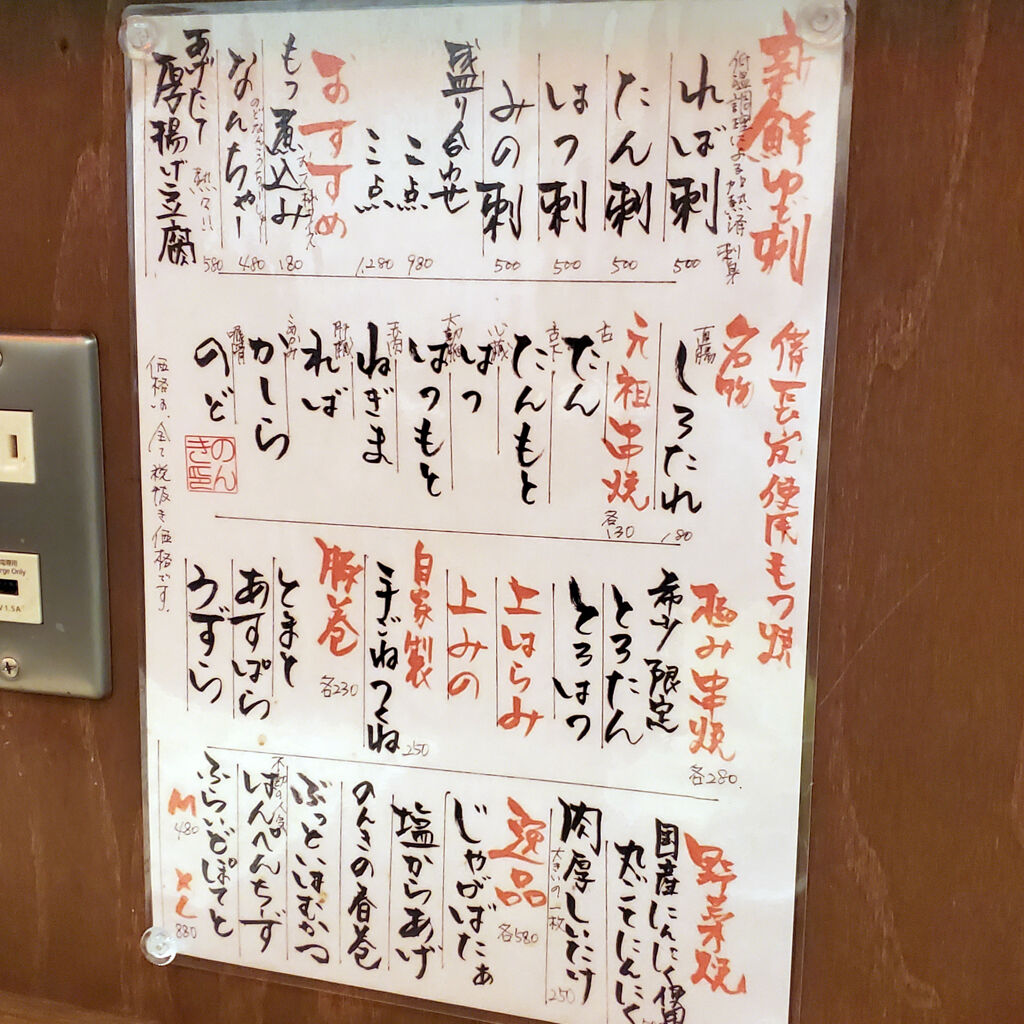 新鮮ゆで刺
低温調理による加熱済 刺身
ればー刺
500
たん刺
500
はつ刺
500
みの刺
500
盛り合わせ
二点
980
三点
1,280
おすすめ
もつ煮込み
180
なんちゃー
480
あげたて 熱々!!
厚揚げ豆腐
580
備長炭使用もつ焼
名物
直腸
しろたれ
180
元祖串焼
各130
たん
たんもと
はつ
はつもと
ねぎま
肝臓
ればー
こめかみ
かしら
のど
のんき印
価格は、全て税抜き価格です。
極み串焼
各280
希少 限定
とろたん
とろはつ
上はらみ
上みの
自家製
手ごねつくね
250
豚巻
各230
とまと
あすぱら
うずら
野菜焼
国産にんにく使用
丸ごとにんにく
肉厚しいたけ
大きいの一枚
250
逸品
各580
じゃがばたぁ
塩からあげ
のんきの春巻
ぶっといはむかつ
不動の人気
はんぺんちーず
ふらいどぽてと
M
480
XL
880
Charge Only
V 1.5A